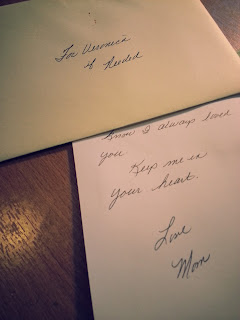 For Veronica
if Needed
know I always loved
you.
Keep me in
your heart.
Love
Mom